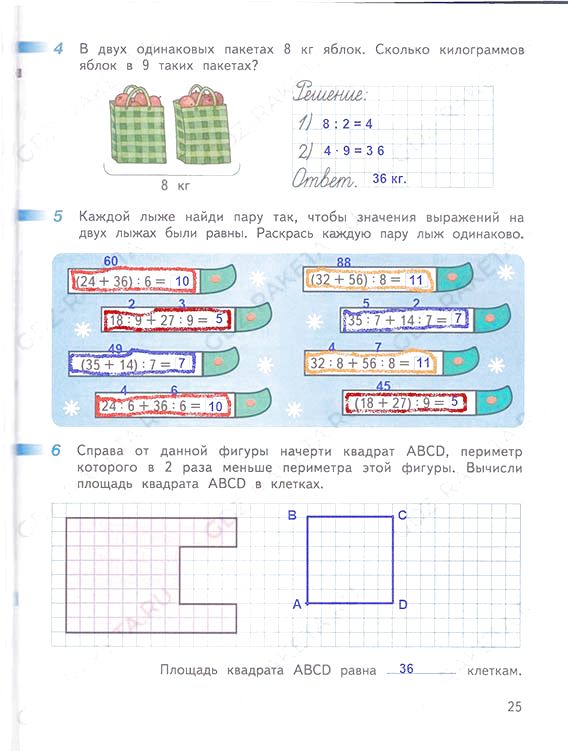 4 В двух одинаковых пакетах 8 кг яблок. Сколько килограммов
яблок в 9 таких пакетах?
Решение:
1) 8 : 2 = 4
2) 4 · 9 = 3 6
Ответ. 36 кг.
8 кг
5 Каждой лыже найди пару так, чтобы значения выражений на
двух лыжах были равны. Раскрась каждую пару лыж одинаково.
60
(24 + 36) : 6 = 10
88
(32 + 56) : 8 = 11
2 3
18 : 9 + 27 : 9 = 5
5 2
35 : 7 + 14 : 7 = 7
49
(35 + 14) : 7 = 7
4 7
32 : 8 + 56 : 8 = 11
4 6
24 : 6 + 36 : 6 = 10
45
(18 + 27) : 9 = 5
6 Справа от данной фигуры начерти квадрат ABCD, периметр
которого в 2 раза меньше периметра этой фигуры. Вычисли
площадь квадрата ABCD в клетках.
B C
A D
Площадь квадрата ABCD равна 36 клеткам.
25